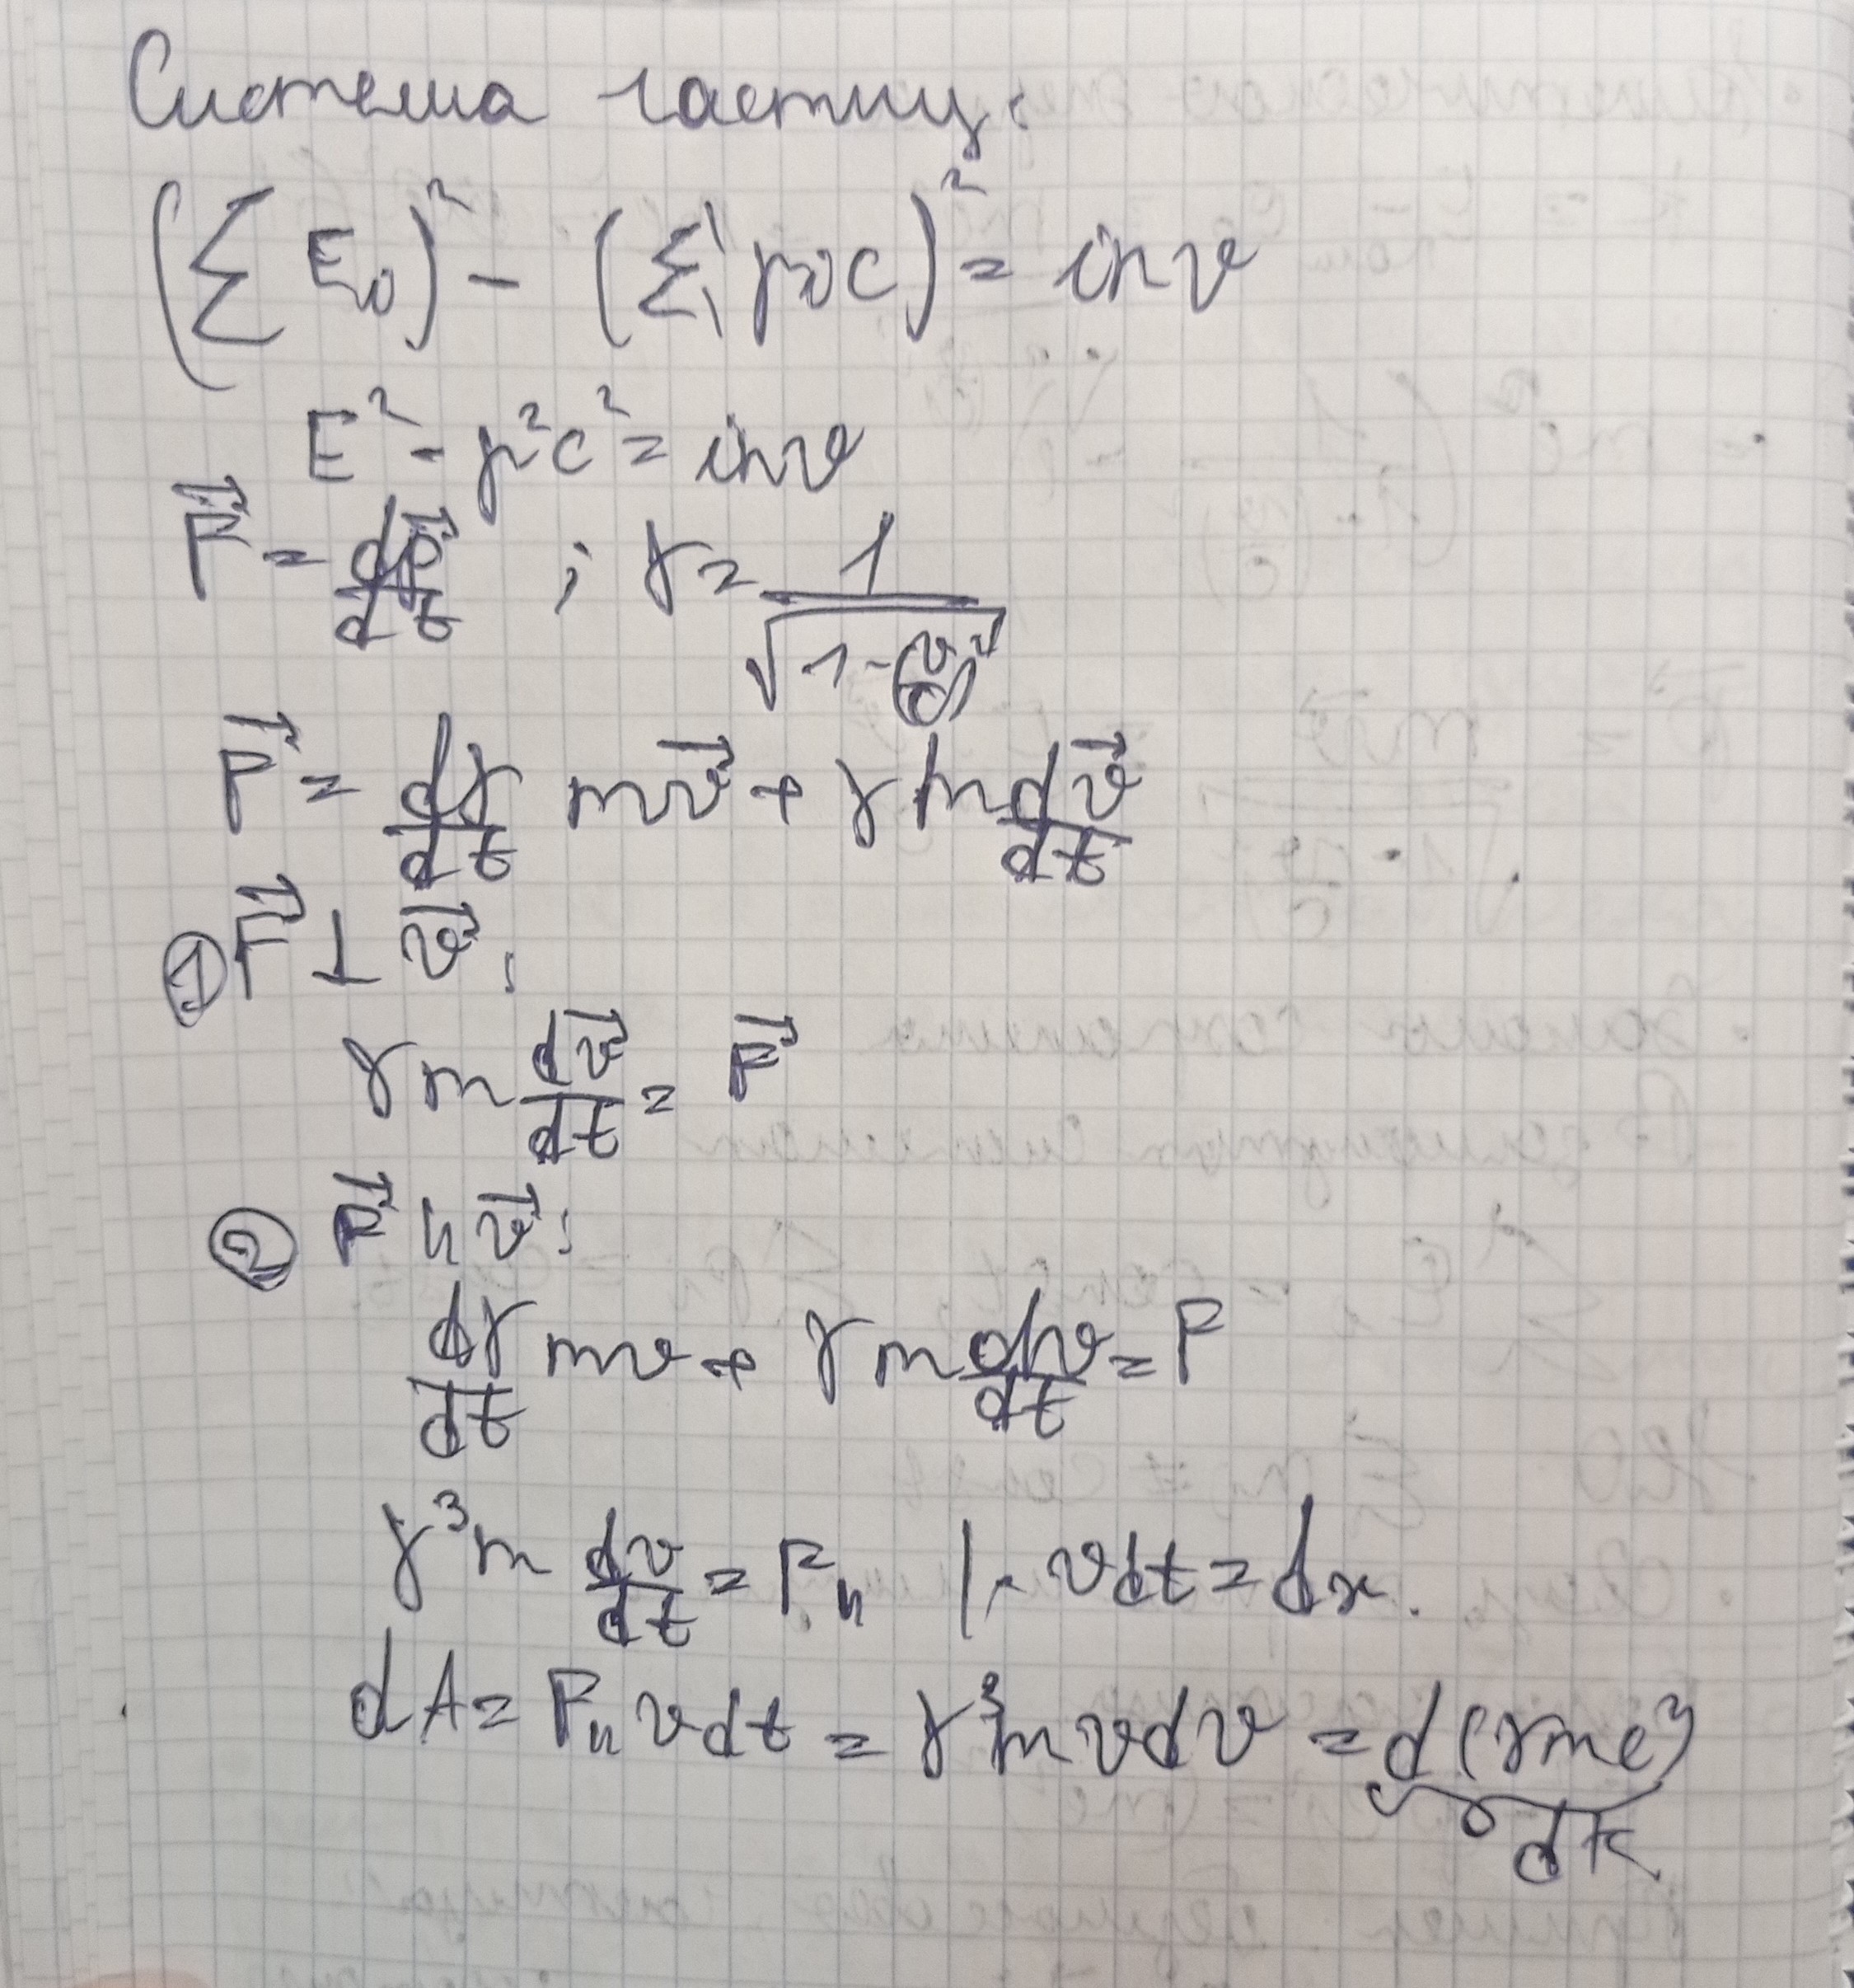 Система частиц:
(∑ E₀)² - (∑ p₀c)² = inv
E² - p²c² = inv
F⃗ = dp⃗/dt ; γ = 1/√(1-(v/c)²)
F⃗ = dγ/dt mv⃗ + γm dv⃗/dt
① F⃗ ⊥ v⃗:
γm dv⃗/dt = F⃗
② F⃗ ॥ v⃗:
dγ/dt mv + γm dv/dt = F
γ³m dv/dt = F॥ |· vdt = dx.
dA = F॥vdt = γ³mvdv = d(γmc²)
dK